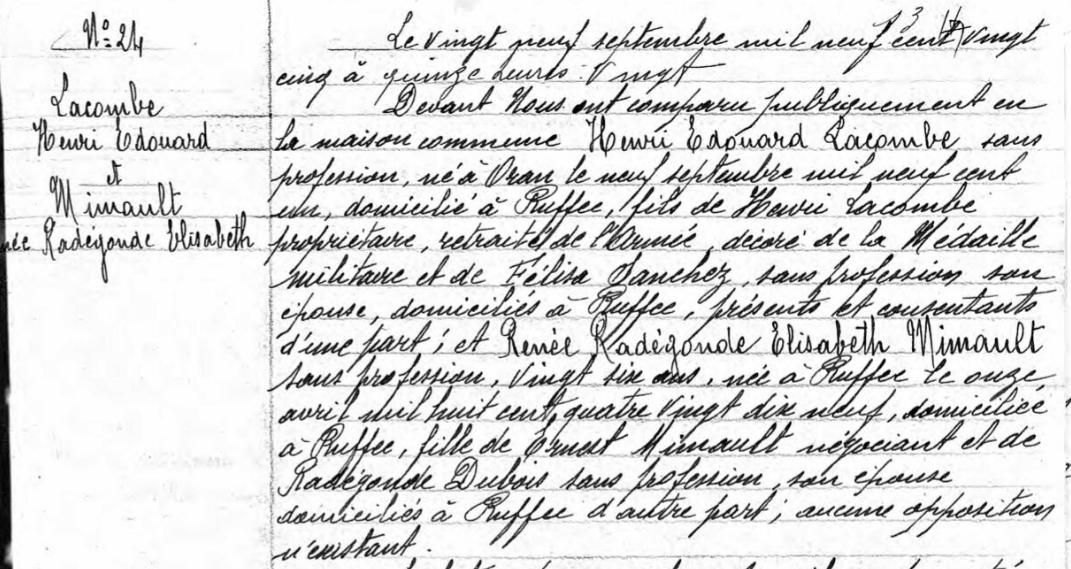 N° 24
Lacombe
Henri Edouard
et
Mimault
née Radégonde Elisabeth
Le vingt neuf septembre mil neuf cent vingt
cinq à quinze heures vingt
Devant Nous ont comparu publiquement en
la maison commune Henri Edouard Lacombe sans
profession, né à Oran le neuf septembre mil neuf cent
un, domicilié à Ruffec, fils de Henri Lacombe
propriétaire, retraité de l'Armée, décoré de la Médaille
militaire et de Félisa Sanchez, sans profession son
épouse, domiciliés à Ruffec, présents et consentants
d'une part ; et Renée Radégonde Elisabeth Mimault
sans profession, vingt six ans, née à Ruffec le onze
avril mil huit cent quatre vingt dix neuf, domiciliée
à Ruffec, fille de Ernest Mimault négociant et de
Radégonde Dubois sans profession, son épouse
domiciliés à Ruffec d'autre part, aucune opposition
n'existant.